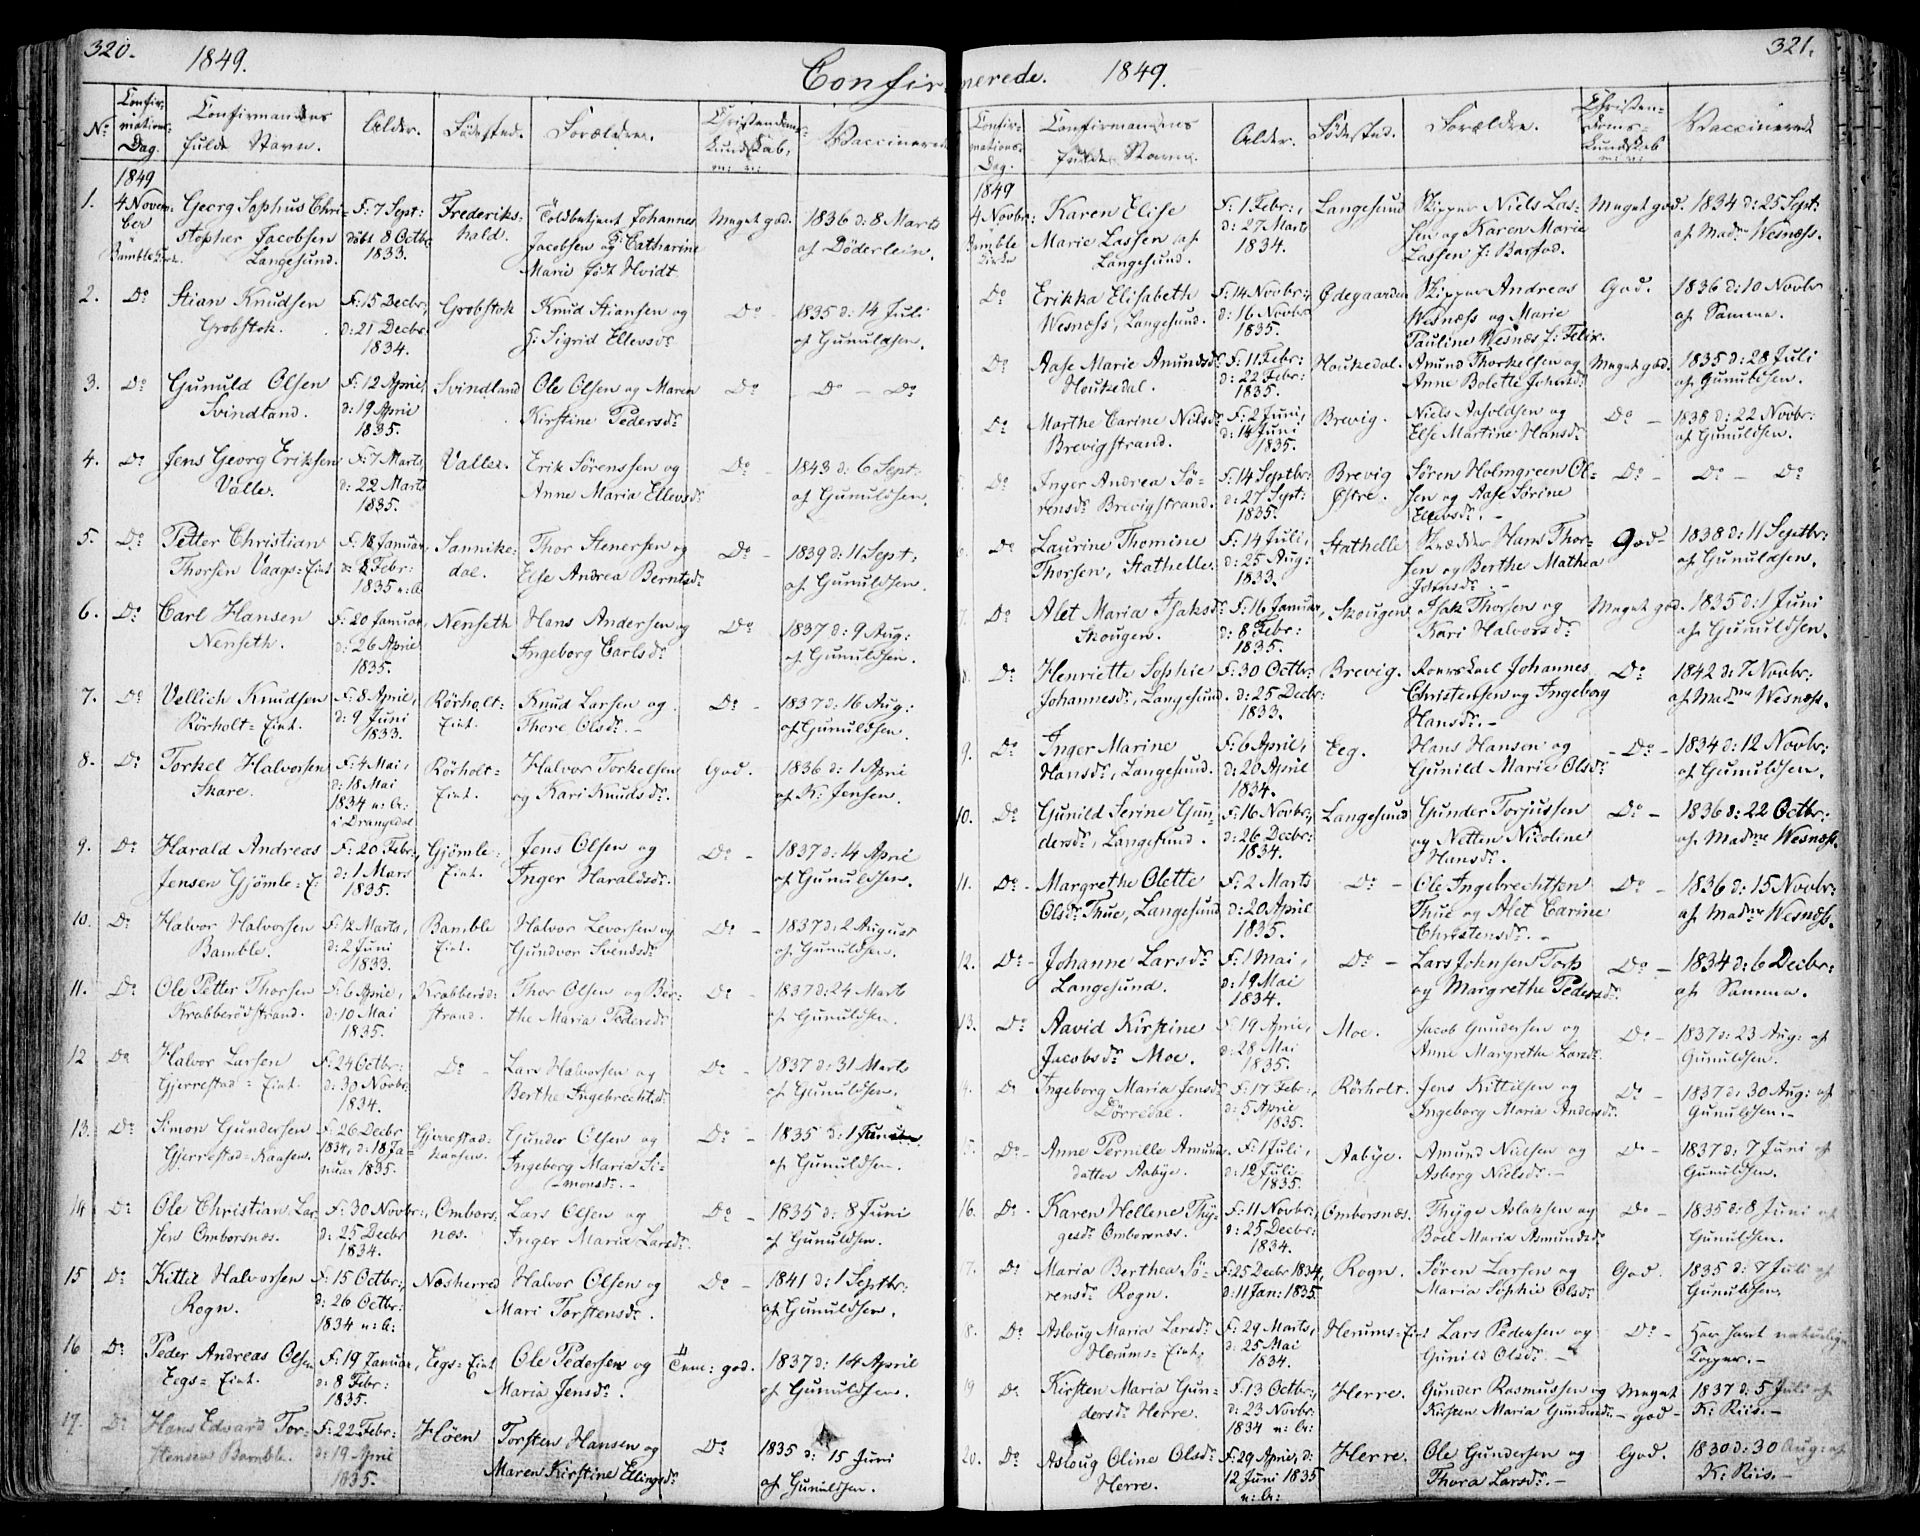 320.
1849.
Confir-
No
Confir-
mations-
Dag.
Confirmandens
fulde Navn.
Alder.
Födested.
Forældre.
Christendoms-
kundskab,
m: v:
Vaccinerede
1849
1. 4 Novem- Georg Sophus Chri- F: 7 Sept: Frederiks- Toldbetjent Johannes Meget god. 1836 d: 8 Marts
ber stopher Jacobsen döbt 8 Octbr hald. Jacobsen og Catharine af Döderlein.
Bamble Kirk. Langesund. 1833. Marie födt Hvidt
2. Do Stian Knudsen F: 15 Decbr, Grobstok Knud Stiansen og Do - 1835 d: 14 Juli
Grobstok. d: 21 Decbr H: Sigrid Ellevsdr af Gunuldsen.
1834.
3. Do Gunuld Olsen F: 12 April, Svindland Ole Olsen og Maren Do - Do - Do
Svindland. d: 19 April Kirstine Pedersdr
1835.
4. Do Jens Georg Eriksen F: 7 Marts, Valle. Erik Sörenssen og Do - 1843 d: 6 Sept:
Valle. d: 22 Marts Anne Maria Ellevsdr af Gunuldsen.
1835.
5. Do Petter Christian F: 18 Januar, Sannike- Thor Stenersen og Do - 1839 d: 11 Sept:
Thorsen Vaags=Eiet d: 8 Febr: dal. Else Andrea Berntsdr af Gunuldsen.
1835 n: b:
6. Do Carl Hansen F: 20 Januar, Nenseth Hans Andersen og Do 1837 d: 9 Aug:
Nenseth. d: 26 April Ingeborg Carlsdr af Gunuldsen.
1835.
7. Do Vellich Knudsen F: 8 April, Rörholt- Knud Larsen og Do - 1837 d: 16 Aug:
Rörholt=Eiet. d: 9 Juni Eiet. Thore Olsdr. - af Gunuldsen.
1833.
8. Do Torkel Halvorsen F: 4 Mai, Rörholt- Halvor Torkelsen God. 1836 d: 1 April
Skare. d: 18 Mai Eiet. og Kari Knudsdr. af K: Jensen.
1834 n: b:
i Drangedal
9. Do Harald Andreas F: 20 Febr, Gjömle- Jens Olsen og Do - 1837 d: 14 April
Jensen Gjömle=E: d: 1 Mars Eiet. Inger Haraldsdr. af Gunuldsen.
1835.
10. Do Halvor Halvorsen F: 12 Marts, Bamble Halvor Levorsen og Do - 1837 d: 2 August
Bamble. d: 2 Juni Eiet. Gundvor Svendsdr af Gunuldsen.
1833.
11. Do Ole Petter Thorsen F: 6 April, Krabberöd- Thor Olsen og Ber- Do - 1837 d: 24 Marts
Krabberödstrand. d: 10 Mai strand. the Maria Pedersdr af Gunuldsen.
1835.
12 Do Halvor Larsen F: 24 Octbr: Do - Lars Halvorsen og Do - 1837 d: 31 Marts
Gjerrestad=Eiet. d: 30 Novbr: Berthe Ingebrechtsdr af Gunuldsen.
1834.
13. Do Simon Gundersen F: 26 Decbr Gjerrestad- Gunder Olsen og Do - 1835 d: 1 Juni
Gjerrestad=Kaasen. 1834, d: 18 Ja- kaasen. Ingeborg Maria Si- af Gunuldsen.
nuar 1835. monsdr. -
14 Do Ole Christian Lar F: 30 Novbr:, Ombors- Lars Olsen og Do - 1835 d: 8 Juni
sens Omborsnæs. d: 25 Decbr næs. Inger Maria Larsdr. af Gunuldsen.
1834.
15 Do Kittil Halvorsen F: 15 Octbr:, Næsherred Halvor Olsen og Do - 1841 d: 1 Septbr:
Rogn. d: 26 Octbr: Mari Torstensdr. af Gunuldsen.
1834 n: b:
16 Do Peder Andreas Olsen F: 19 Januar, Eegs=Eiet Ole Pedersen og Tem: god. 1837 d: 14 April
Eegs=Eiet. d: 8 Febr: Maria Jensdr. af Gunuldsen.
1835.
17. Do Hans Edvard Tor- F: 22 Febr: Höen Torsten Hansen og Do - 1835 d: 15 Juni
stensen Bamble. d: 19 April Maren Kirstine Ellingsdr af Gunuldsen.
1835.
321.
merede. 1849.
Confir-
mations-
Dag.
Confirmandens
fulde Navn.
Alder.
Födested.
Forældre.
Christen-
doms-
kundskab
m: v:
Vaccinerede
1849
4 Novbr: Karen Elise F: 1 Febr:, Langesund Skipper Niels Las- Meget god. 1834 d: 25 Sept:
Bamble Marie Lassen af d: 27 Marts sen og Karen Marie af Madme Wesnæss.
Kirke Langesund. 1834. Lassen f: Barfod.
Do Erikka Elisabeth F: 14 Novbr:, Ødegaarden Skipper Andreas God. 1836 d: 10 Novbr
Wesnæss, Langesund. d: 16 Novbr Wesnæss og Marie af Samma.
1835. Pauline Wesnæs f: Felix.
Do Aase Marie Amundsdr F: 11 Febr: Houkedal. Amund Thorkelsen og Meget god. 1835 d: 28 Juli
Houkedal. d: 22 Febr: Anne Bolette Jensdr af Gunuldsen.
1835.
Do Marthe Carine Nilsdr F: 2 Juni, Brevig. Niels Aasoldsen og Do - 1838 d: 22 Novbr:
Brevigstrand. d: 14 Juni Else Martine Hansdr af Gunuldsen.
1835.
Do Inger Andrea Sö- F: 14 Septbr: Brevig Sören Holmgreen Ol- Do - Do - Do
rensdr Brevigstrand. d: 27 Sept: Østre. sen og Aase Sörine
1835. Ellevsdr. -
Do Laurine Thomine F: 14 Juli, Stathelle Skrædder Hans Thor- God - 1838 d: 11 Septbr:
Thorsen, Stathelle. d: 25 Aug: sen og Berthe Mathea af Gunuldsen.
1833. Jensdr. -
7. Do Alet Maria Isaksdr F: 16 Januar, Skougen Isak Thorsen og Meget god. 1835 d: 1 Juni
Skougen. d: 8 Febr: Kari Halvorsdr. af Gunuldsen.
1835.
8. Do Henriette Sophie F: 30 Octbr: Brevig. Roerskarl Johannes Do - 1842 d: 7 Novbr:
Johannesdr, Langesund. d: 25 Decbr: Christensen og Ingeborg af Madme Wesnæss.
1833. Hansdr. -
9. Do Inger Marine F: 6 April, Eeg. Hans Hansen og - Do - 1834 d: 12 Novbr:
Hansdr, Langesund. d: 20 April Gunild Marie Olsdr af Gunuldsen.
1834.
10. Do Gunild Serine Gun- F: 16 Novbr, Langesund Gunder Torjussen Do - 1836 d: 22 Octbr:
dersdr, Langesund. d: 26 Decbr: og Netten Nicoline af Madme Wesnæss.
1834. Hansdr.
11. Do - Margrethe Olette F: 2 Marts Do - Ole Ingebrechtsen Do - 1836 d: 15 Novbr:
Olsdr Thue, Langesund d: 20 April Thue og Alet Carine af Madme Wesnæss.
1835. Christensdr. -
12. Do - Johanne Larsdr F: 1 Mai, Do - Lars Johnsen Torp Do - 1834 d: 6 Decbr:
Langesund. d: 19 Mai og Margrethe Pedersdr. af Samma.
1834.
13. Do Aavid Kirstine F: 19 April, Moe. Jacob Gundersen og Do - 1837 d: 23 Aug: af
Jacobsdr Moe. d: 28 Mai Anne Margrethe Larsdr. Gunuldsen.
1835.
4. Do Ingeborg Maria Jensdr F: 17 Febr:, Rörholt. Jens Kittilsen og Do - 1837 d: 30 Aug: af
Dörredal. d: 5 April Ingeborg Maria Andersdr. Gunuldsen. -
1835.
5. Do - Anne Pernille Amunds F: 1 Juli, Aabye. Amund Nielsen og Do - 1837 d: 7 Juni af
datter Aabye. d: 12 Juli Asborg Nielsdr. - Gunuldsen.
1835.
16. Do - Karen Hellene Thy- F: 11 Novbr: Omborsnæs. Thyge Aslaksen og Do - 1835 d: 8 Juni af
gesdr Omborsnæs. d: 25 Decbr: Boel Maria Asmundsdr Gunuldsen.
1834.
7. Do Maria Berthea Sö- F: 25 Decbr 1834, Rogn. Sören Larsen og God. 1835 d: 7 Juli af
rensdr Rogn. d: 11 Jan: 1835. Maria Sophie Olsdr Gunuldsen.
8. Do Aslaug Maria Larsdr F: 29 Marts, Herums=Eiet Lars Pedersen og Do - Har havt naturlige
Herums=Eiet. d: 25 Mai Gunild Olsdr. - Kopper. -
1834.
19 Do Kirsten Maria Gun- F: 13 Octbr:, Herre. Gunder Rasmussen og Meget 1837 d: 5 Juli af
dersdr Herre. d: 23 Novbr: Kirsten Maria Gundersdr. - god - K: Riis. -
1834 n: b:
20. Do Aslaug Oline Olsdr F: 29 April, d: Herre. Ole Gundersen og God. 1830 d: 30 Aug: af
Herre. 12 Juni 1835 Thora Larsdr. - K: Riis. -
n: b: